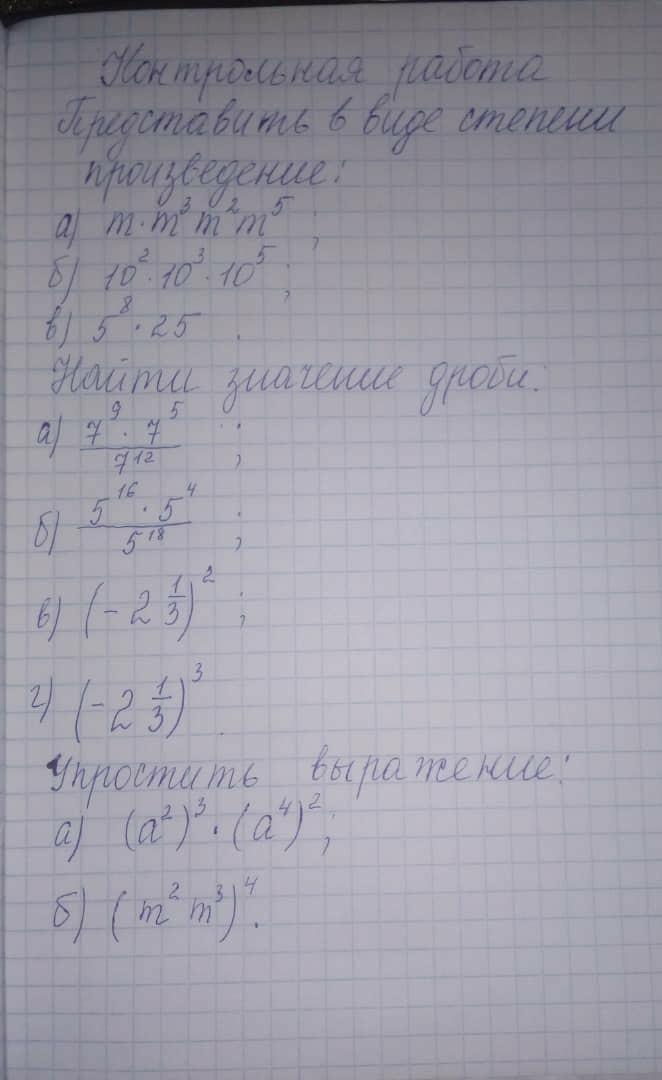 Контрольная работа
Представить в виде степени
произведение:
а) m · m³ m² m⁵ ;
б) 10² · 10³ · 10⁵ ;
в) 5⁸ · 25 .
Найти значение дроби:
а) (7⁹ · 7⁵)/7¹² ;
б) (5¹⁶ · 5⁴)/5¹⁸ ;
в) (- 2 1/3)² ;
г) (- 2 1/3)³ .
Упростить выражение:
а) (a²)³ · (a⁴)² ;
б) (m² m³)⁴ .